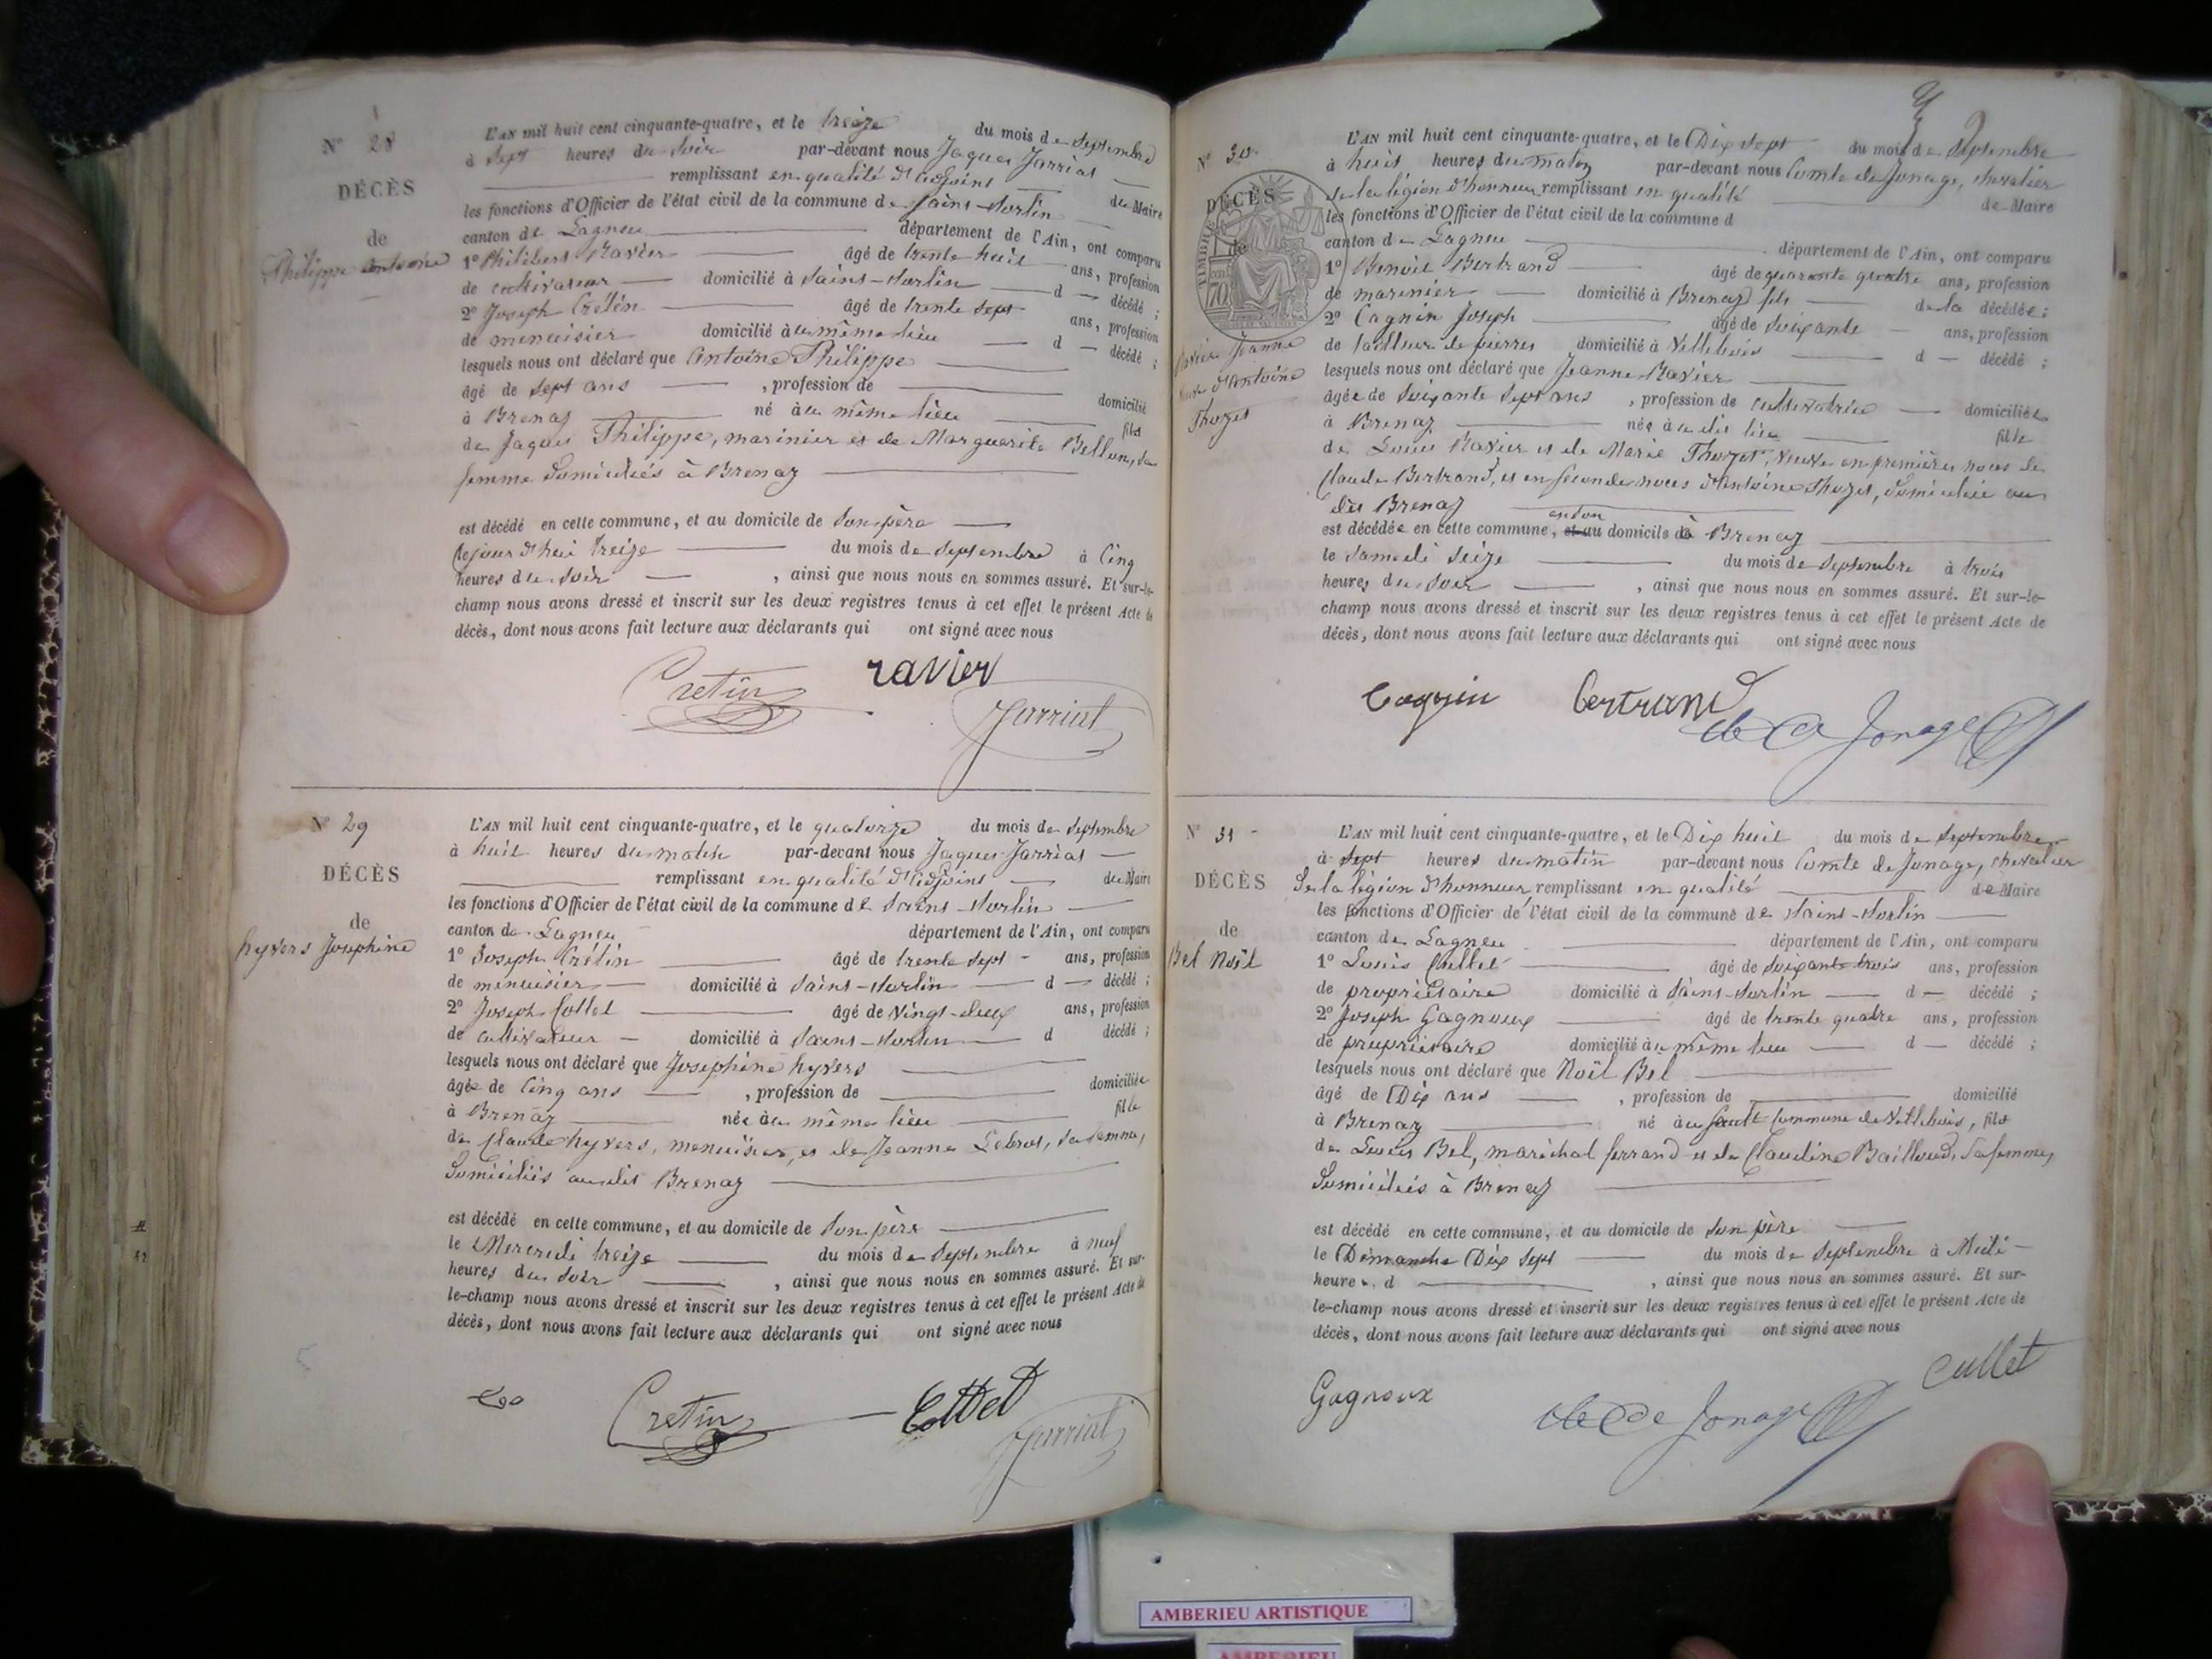 N° 28
DÉCÈS
de
Philippe Antoine
L'AN mil huit cent cinquante-quatre, et le treize du mois de Septembre
à Sept heures du Soir par-devant nous Jaques Jarriat
remplissant en qualité d'adjoint du Maire
les fonctions d'Officier de l'état civil de la commune de Saint-Sorlin
canton de Lagneu département de l'Ain, ont comparu
1° Philibert Ravier âgé de trente huit ans, profession
de cultivateur domicilié à Saint-Sorlin d décédé ;
2° Joseph Crétin âgé de trente Sept ans, profession
de menuisier domicilié au même lieu d décédé ;
lesquels nous ont déclaré que Antoine Philippe
âgé de Sept ans , profession de domicilié
à Brenaz né au même lieu fils
de Jaques Philippe, marinier et de Marguerite Bellon, sa
femme domiciliés à Brenaz
est décédé en cette commune, et au domicile de Son père
Cejourd'hui treize du mois de Septembre à Cinq
heures du Soir , ainsi que nous nous en sommes assuré. Et sur-le-
champ nous avons dressé et inscrit sur les deux registres tenus à cet effet le présent Acte de
décès, dont nous avons fait lecture aux déclarants qui ont signé avec nous
Cretin ravier
Jarriat
N° 29
DÉCÈS
de
hyvers Josephine
L'AN mil huit cent cinquante-quatre, et le quatorze du mois de Septembre
à huit heures du matin par-devant nous Jaques Jarriat
remplissant en qualité d'adjoint du Maire
les fonctions d'Officier de l'état civil de la commune de Saint-Sorlin
canton de Lagneu département de l'Ain, ont comparu
1° Joseph Crétin âgé de trente Sept ans, profession
de menuisier domicilié à Saint-Sorlin d décédé ;
2° Joseph Cottet âgé de Vingt-deux ans, profession
de cultivateur domicilié à Saint-Sorlin d décédé ;
lesquels nous ont déclaré que Josephine hyvers
âgée de Cinq ans , profession de domiciliée
à Brenaz née au même lieu fille
de Claude hyvers, menuisier, et de Jeanne Lebrot, sa femme,
domiciliés audit Brenaz
est décédé en cette commune, et au domicile de Son père
le Mercredi treize du mois de Septembre à neuf
heures du Soir , ainsi que nous nous en sommes assuré. Et sur-
le-champ nous avons dressé et inscrit sur les deux registres tenus à cet effet le présent Acte de
décès, dont nous avons fait lecture aux déclarants qui ont signé avec nous
Cretin Cottet
Jarriat
N° 30
DÉCÈS
de
Ravier Jeanne
veuve d'Antoine
Thozet
L'AN mil huit cent cinquante-quatre, et le Dix Sept du mois de Septembre
à huit heures du matin par-devant nous Comte de Jonage, chevalier
de la légion d'honneur remplissant en qualité de Maire
les fonctions d'Officier de l'état civil de la commune d
canton de Lagneu département de l'Ain, ont comparu
1° Benoit Bertrand âgé de quarante quatre ans, profession
de marinier domicilié à Brenaz fils de la décédée ;
2° Cagnin Joseph âgé de Soixante ans, profession
de tailleur de pierres domicilié à Villebois d décédé ;
lesquels nous ont déclaré que Jeanne Ravier
âgée de Soixante Sept ans , profession de cultivatrice domiciliée
à Brenaz née au dit lieu fille
de Louis Ravier et de Marie Thozet, veuve en premières noces de
Claude Bertrand, et en Seconde noces d'Antoine Thozet, domiciliée au
dit Brenaz
en son
est décédée en cette commune, et au domicile à Brenaz
le Samedi Seize du mois de Septembre à trois
heures du Soir , ainsi que nous nous en sommes assuré. Et sur-le-
champ nous avons dressé et inscrit sur les deux registres tenus à cet effet le présent Acte de
décès, dont nous avons fait lecture aux déclarants qui ont signé avec nous
Cagnin bertrand
de Jonage
N° 31
DÉCÈS
de
Bel Noël
L'AN mil huit cent cinquante-quatre, et le Dix huit du mois de Septembre
à Sept heures du matin par-devant nous Comte de Jonage, chevalier
de la légion d'honneur, remplissant en qualité de Maire
les fonctions d'Officier de l'état civil de la commune de Saint-Sorlin
canton de Lagneu département de l'Ain, ont comparu
1° Louis Cullet âgé de Soixante trois ans, profession
de propriétaire domicilié à Saint-Sorlin d décédé ;
2° Joseph Gagnoux âgé de trente quatre ans, profession
de propriétaire domicilié au même lieu d décédé ;
lesquels nous ont déclaré que Noël Bel
âgé de Dix ans , profession de domicilié
à Brenaz né au Sault Commune de Villebois, fils
de Louis Bel, maréchal ferrand et de Claudine Bailloud, Sa femme,
domiciliés à Brenaz
est décédé en cette commune, et au domicile de Son père
le Dimanche Dix Sept du mois de Septembre à Midi
heure d , ainsi que nous nous en sommes assuré. Et sur-
le-champ nous avons dressé et inscrit sur les deux registres tenus à cet effet le présent Acte de
décès, dont nous avons fait lecture aux déclarants qui ont signé avec nous
Cullet
Gagnoux de Jonage
AMBERIEU ARTISTIQUE
AMBERIEU